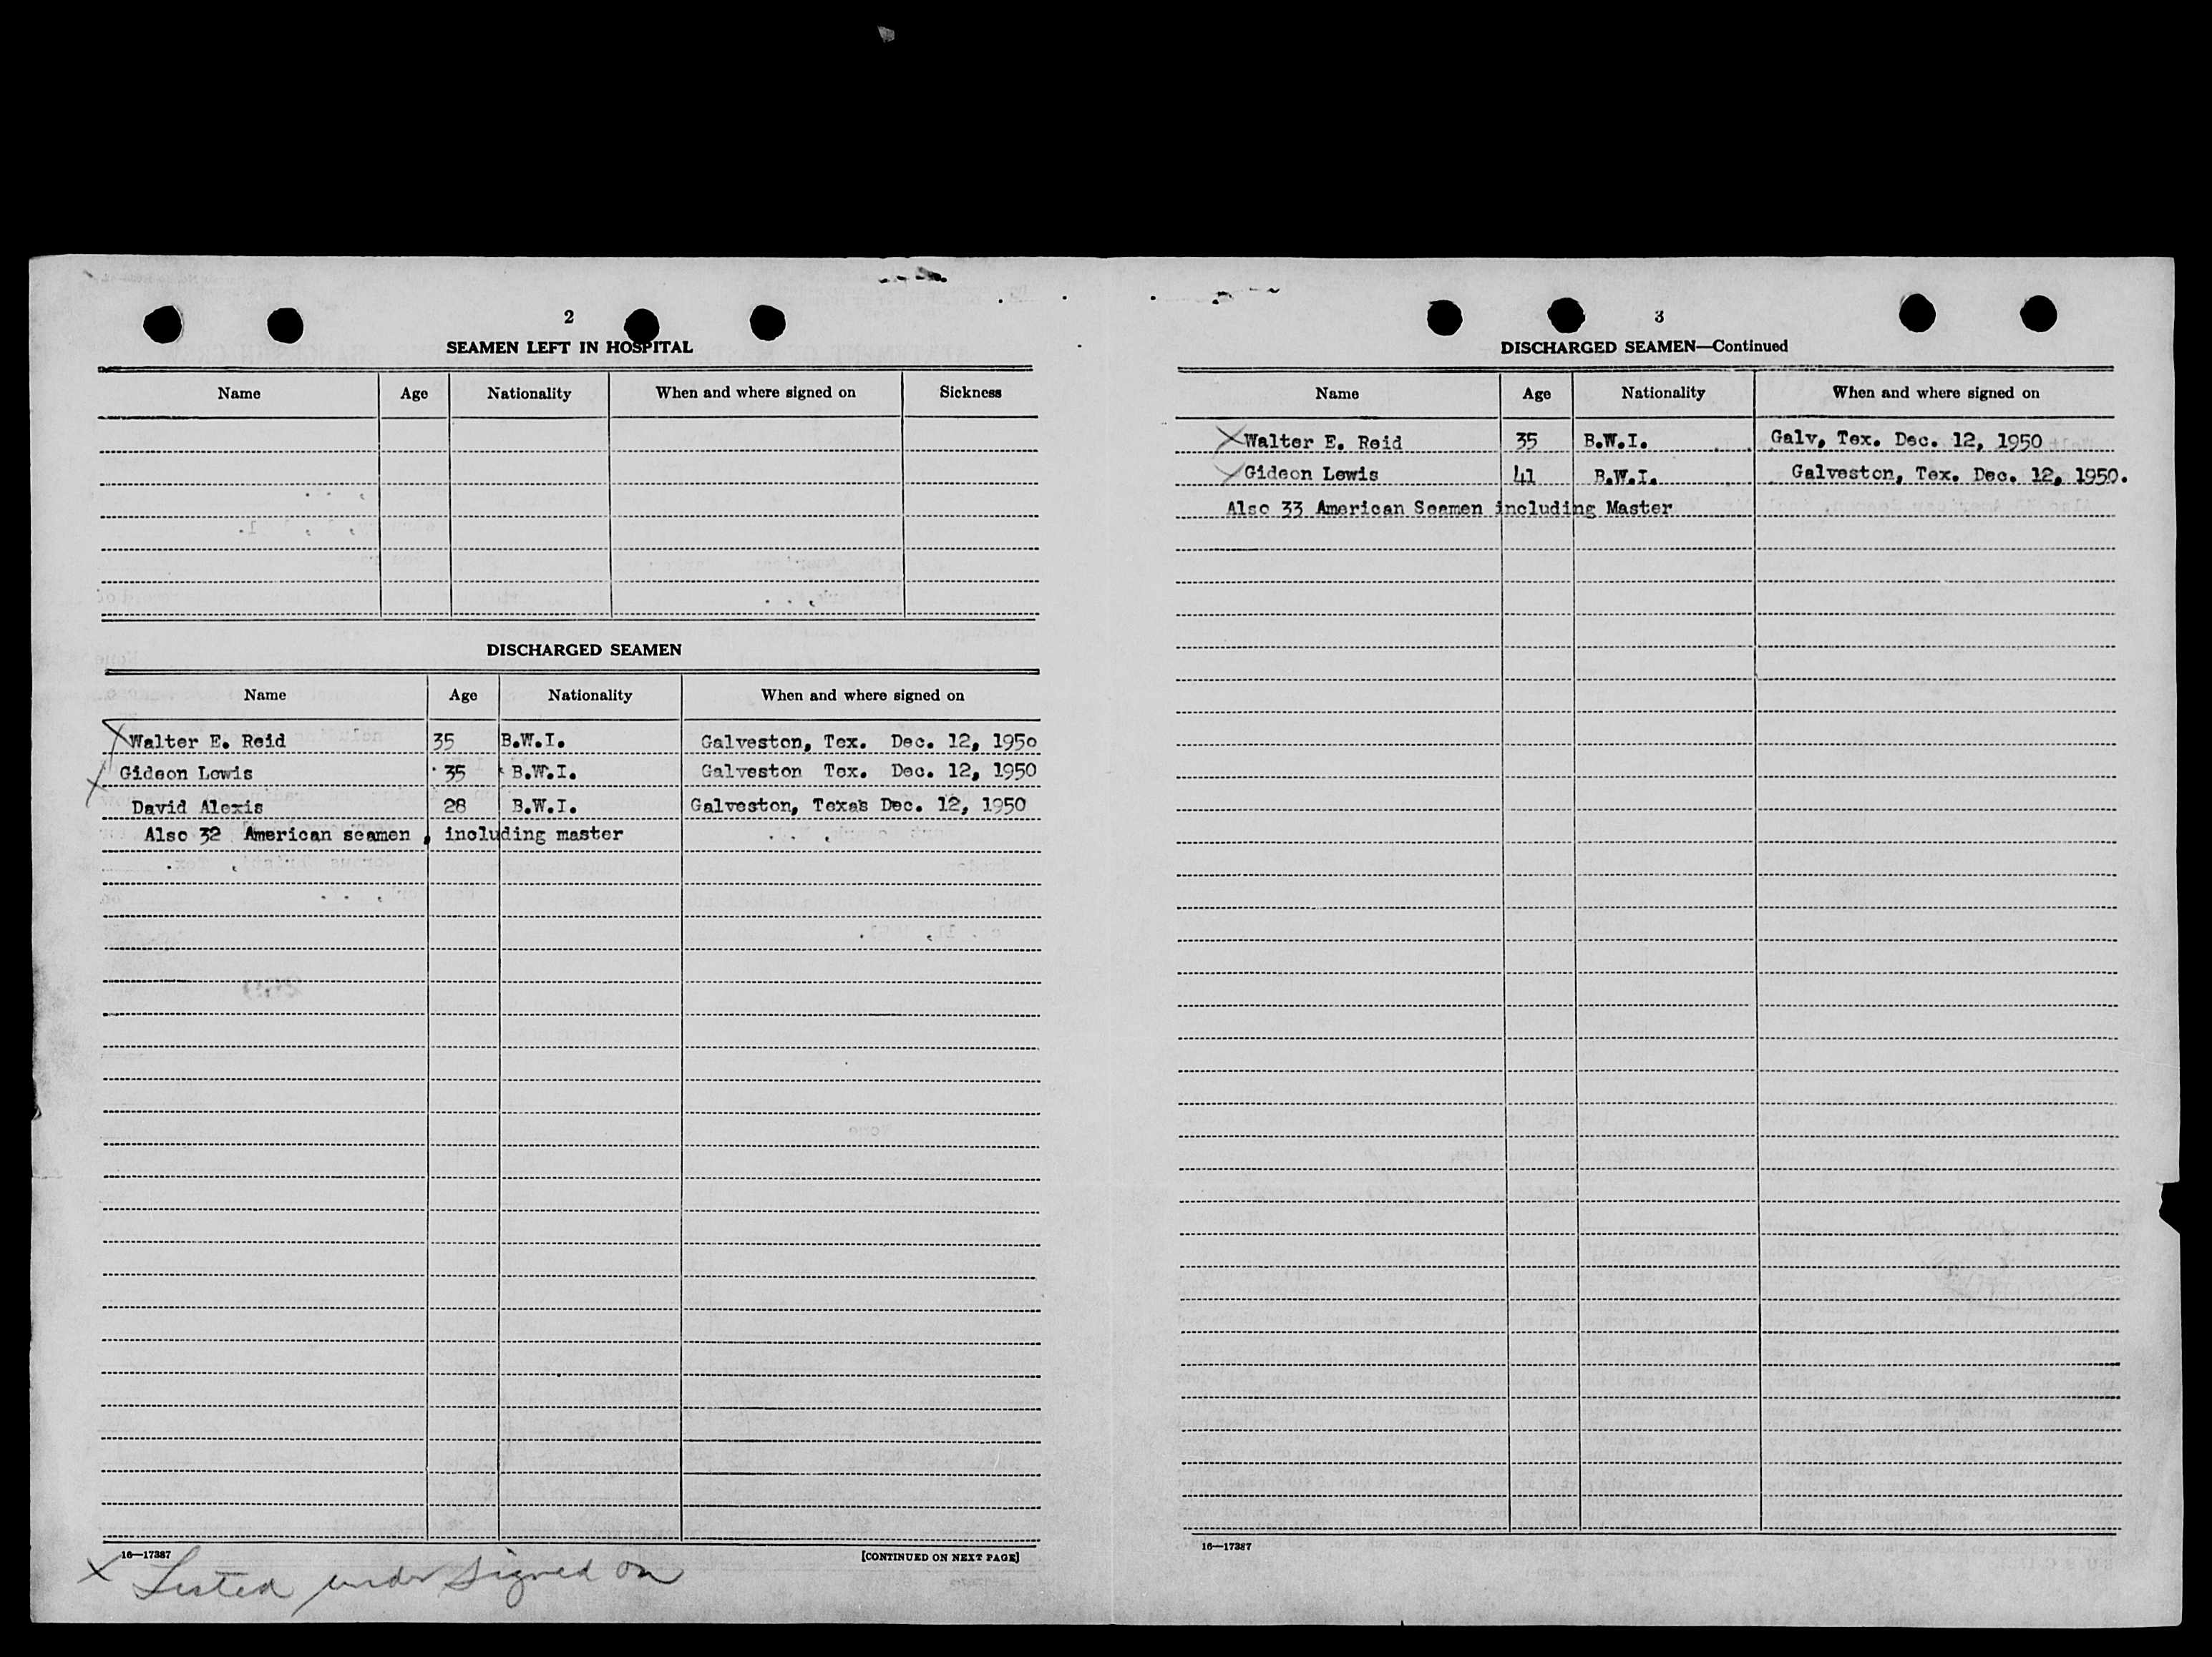 2
SEAMEN LEFT IN HOSPITAL
Name Age Nationality When and where signed on Sickness
DISCHARGED SEAMEN
Name Age Nationality When and where signed on
X Walter E. Reid 35 B.W.I. Galveston, Tex. Dec. 12, 1950
X Gideon Lewis 35 B.W.I. Galveston Tex. Dec. 12, 1950
David Alexis 28 B.W.I. Galveston, Texas Dec. 12, 1950
Also 32 American seamen , including master
16—17387 [CONTINUED ON NEXT PAGE]
X Listed under signed on
3
DISCHARGED SEAMEN—Continued
Name Age Nationality When and where signed on
X Walter E. Reid 35 B.W.I. Galv, Tex. Dec. 12, 1950
X Gideon Lewis 41 B.W.I. Galveston, Tex. Dec. 12, 1950.
Also 33 American Seamen including Master
16—17387